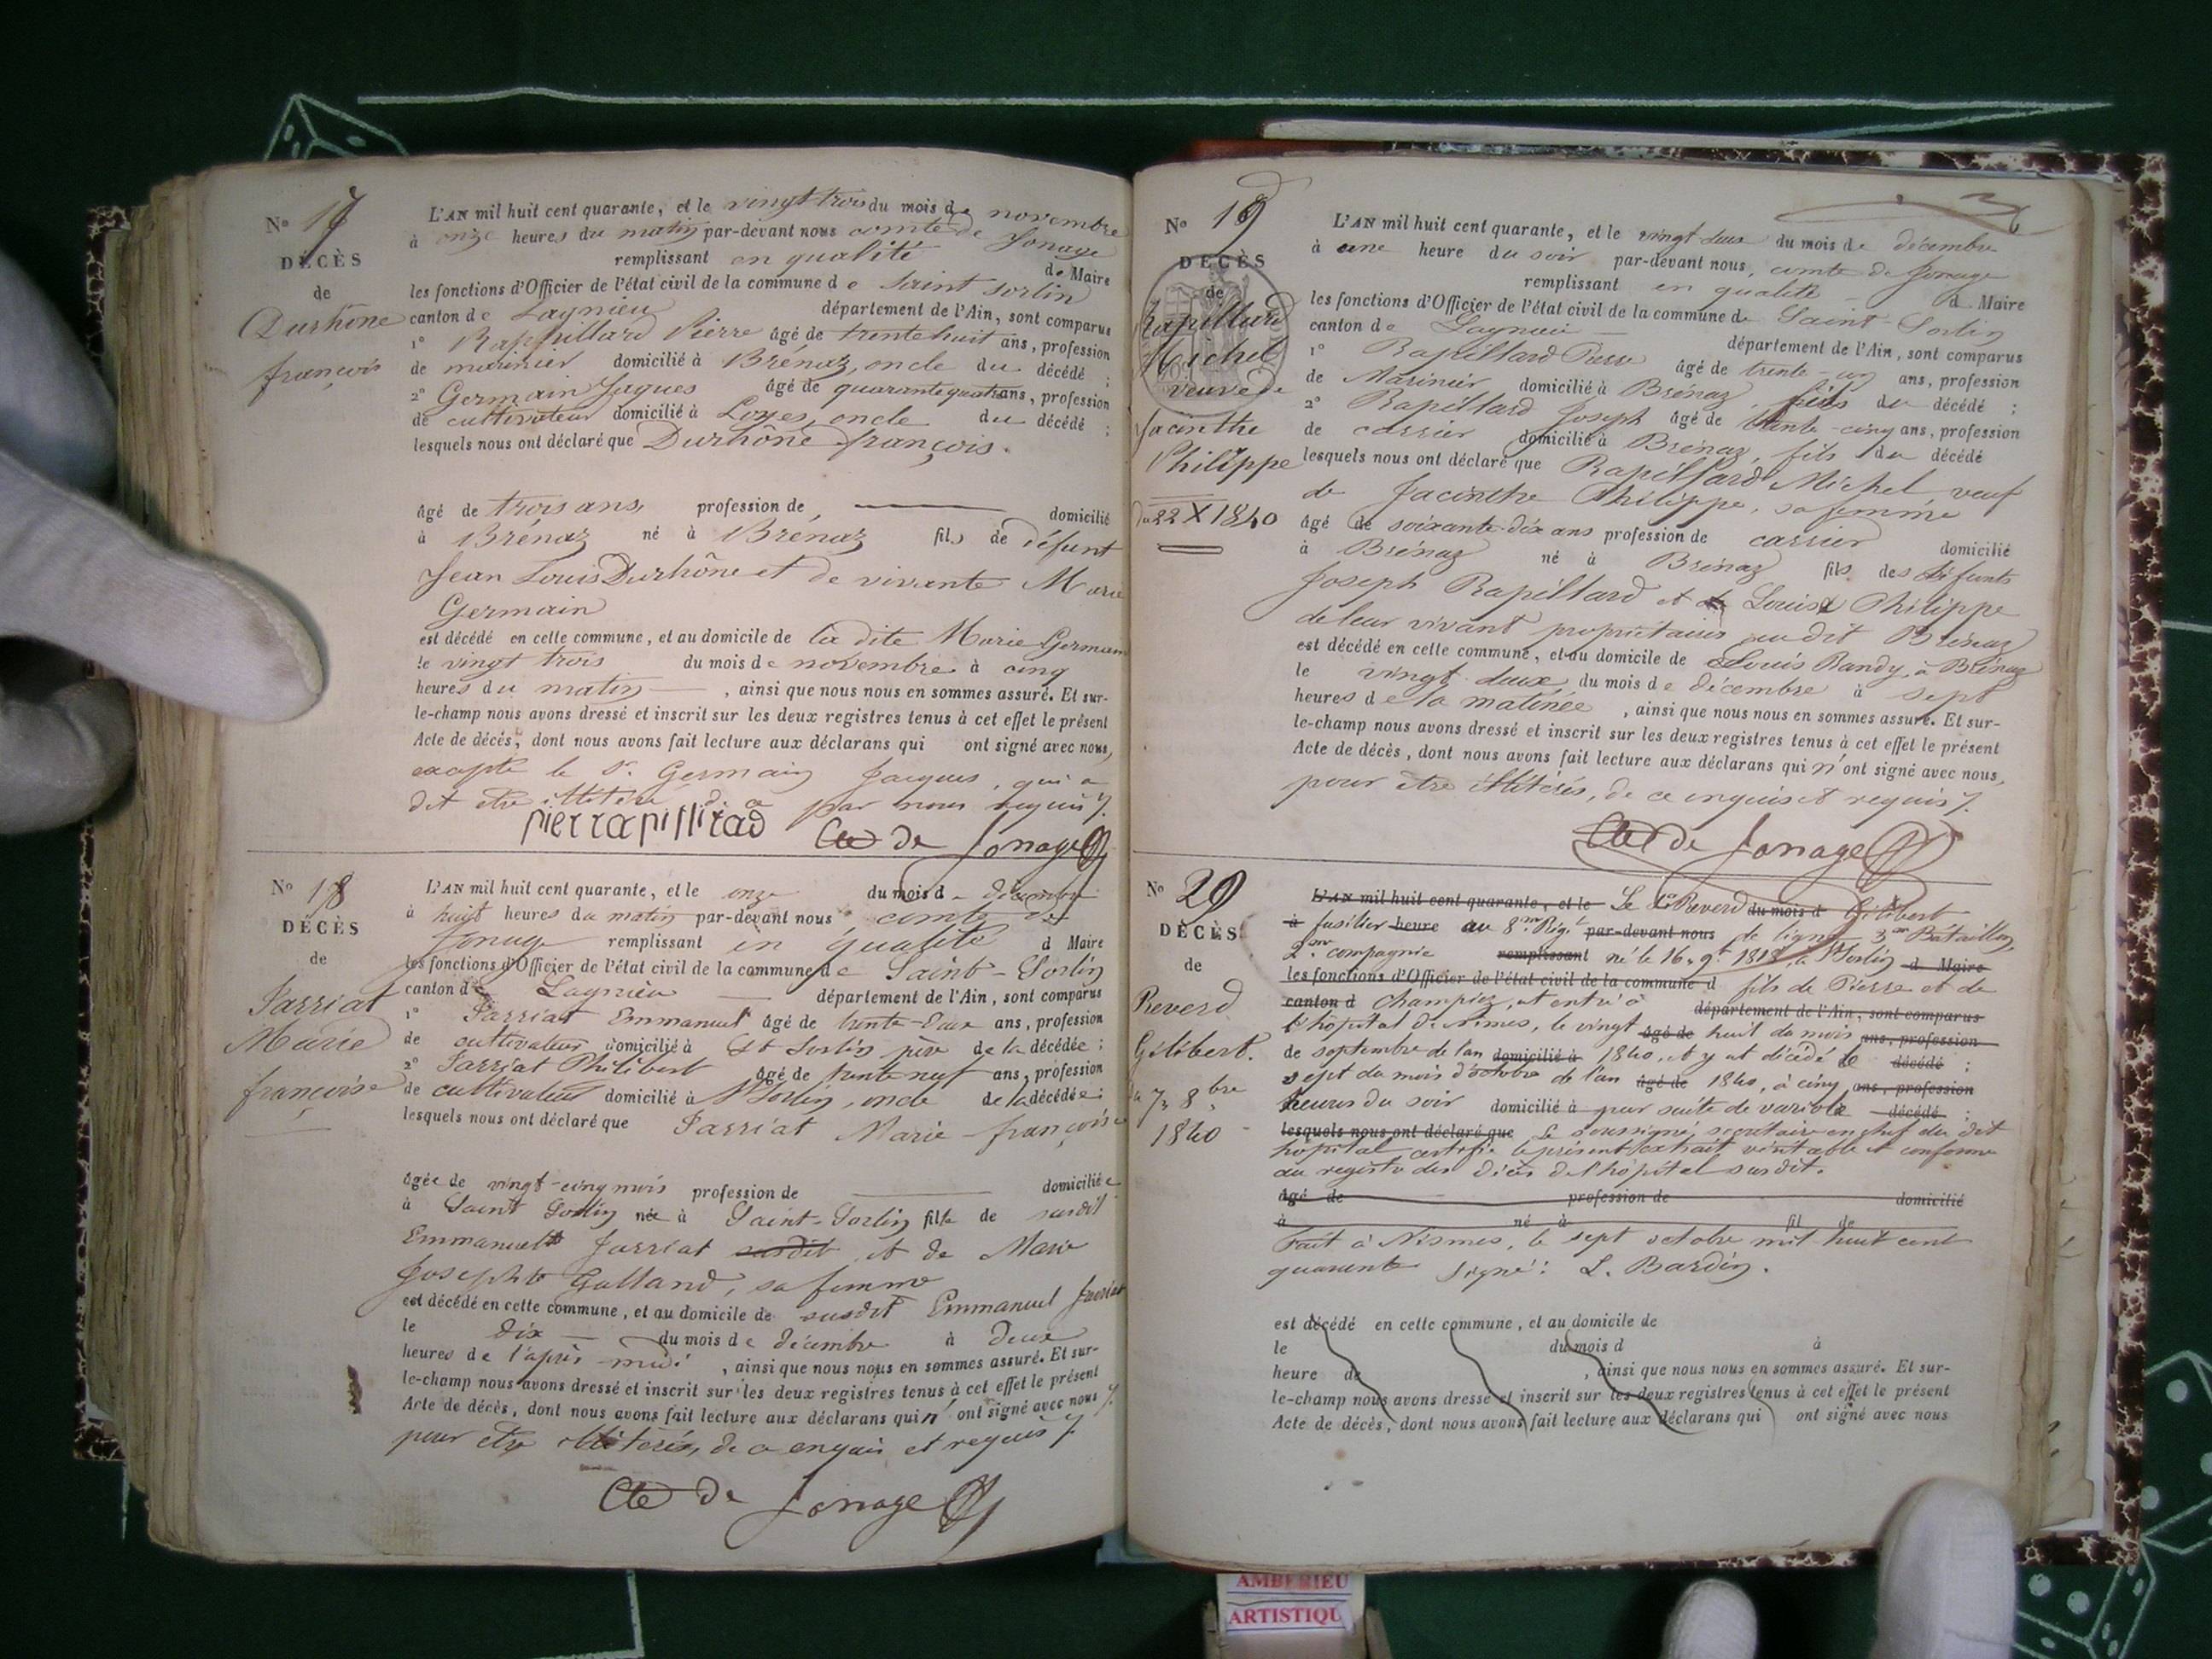 N° 17
DÉCÈS
de
Durhône
françois
L'AN mil huit cent quarante, et le vingt trois du mois de novembre
à onze heures du matin par-devant nous comte de Jonage
remplissant en qualité de Maire
les fonctions d'Officier de l'état civil de la commune de Saint Sorlin
canton de Lagnieu département de l'Ain, sont comparus
1° Rappillard Pierre âgé de trente huit ans, profession
de marinier domicilié à Brénaz, oncle du décédé ;
2° Germain Jaques âgé de quarante quatre ans, profession
de cultivateur domicilié à Loyes, oncle du décédé ;
lesquels nous ont déclaré que Durhône françois.
âgé de trois ans profession de domicilié
à Brénaz né à Brénaz fils de défunt
Jean Louis Durhône et de vivante Marie
Germain
est décédé en cette commune, et au domicile de la dite Marie Germain
le vingt trois du mois de novembre à cinq
heures du matin , ainsi que nous nous en sommes assuré. Et sur-
le-champ nous avons dressé et inscrit sur les deux registres tenus à cet effet le présent
Acte de décès, dont nous avons fait lecture aux déclarans qui ont signé avec nous,
excepté le Sr. Germain Jacques, qui a
dit être illitéré de ce par nous requis
pierrapillrad Cte de Jonage
N° 18
DÉCÈS
de
Jarriat
Marie
françoise
L'AN mil huit cent quarante, et le onze du mois d décembre
à huit heures du matin par-devant nous comte de
Jonage remplissant en qualité d Maire
les fonctions d'Officier de l'état civil de la commune de Saint-Sorlin
canton de Lagnieu département de l'Ain, sont comparus
1° Jarriat Emmanuel âgé de trente-deux ans, profession
de cultivateur domicilié à St Sorlin père de la décédée ;
2° Jarriat Philibert âgé de trente neuf ans, profession
de cultivateur domicilié à St Sorlin, oncle de la décédée ;
lesquels nous ont déclaré que Jarriat Marie françoise
âgée de vingt-cinq mois profession de domiciliée
à Saint Sorlin née à Saint-Sorlin fille de susdit
Emmanuel Jarriat susdit et de Marie
Josephte Galland, sa femme
est décédé en cette commune, et au domicile de susdit Emmanuel Jarriat
le dix du mois de décembre à deux
heures de l'après-midi , ainsi que nous nous en sommes assuré. Et sur-
le-champ nous avons dressé et inscrit sur les deux registres tenus à cet effet le présent
Acte de décès, dont nous avons fait lecture aux déclarans qui n'ont signé avec nous
pour être illitérés, de ce enquis et requis
Cte de Jonage
N° 19
DÉCÈS
de
Rapillard
Michel
veuve de
Jacinthe
Philippe
du 22 X 1840
L'AN mil huit cent quarante, et le vingt deux du mois de décembre
à une heure du soir par-devant nous, comte de Jonage
remplissant en qualité d Maire
les fonctions d'Officier de l'état civil de la commune de Saint-Sorlin
canton de Lagnieu département de l'Ain, sont comparus
1° Rapillard Pierre âgé de trente-un ans, profession
de Marinier domicilié à Brénaz, fils du décédé ;
2° Rapillard Joseph âgé de trente-cinq ans, profession
de carrier domicilié à Brénaz, fils du décédé
lesquels nous ont déclaré que Rapillard Michel, veuf
de Jacinthe Philippe, sa femme
âgé de soixante-dix ans profession de carrier domicilié
à Brénaz né à Brénaz fils des défunts
Joseph Rapillard et de Louise Philippe
de leur vivant propriétaires au dit Brénaz
est décédé en cette commune, et au domicile de Louis Randy, à Brénaz
le vingt-deux du mois de décembre à sept
heures de la matinée , ainsi que nous nous en sommes assuré. Et sur-
le-champ nous avons dressé et inscrit sur les deux registres tenus à cet effet le présent
Acte de décès, dont nous avons fait lecture aux déclarans qui n'ont signé avec nous,
pour être illitérés, de ce enquis et requis
Cte de Jonage
N° 20
DÉCÈS
de
Reverd
Gilibert.
du 7 8bre
1840
L'AN mil huit cent quarante, et le Le Sr Reverd du mois d Gilibert
à fusilier heure au 8me Régt par-devant nous de ligne 3me Bataillon
2me compagnie remplissant né le 16 9bre 1818, à St Sorlin d Maire
les fonctions d'Officier de l'état civil de la commune d fils de Pierre et de
canton d Champiez, est entré à département de l'Ain, sont comparus
l'hôpital de Nimes, le vingt âgé de huit du mois ans, profession
de septembre de l'an domicilié à 1840, et y est décédé le décédé ;
sept du mois d'octobre de l'an âgé de 1840, à cinq ans, profession
heures du soir domicilié à par suite de variole décédé ;
lesquels nous ont déclaré que Le soussigné secrétaire en chef du dit
hôpital certifie le présent extrait véritable et conforme
au registre des décès de l'hôpital susdit.
âgé de profession de domicilié
à né à fil de
Fait à Nismes, le sept octobre mil huit cent
quarante signé : L. Bardin.
est décédé en cette commune, et au domicile de
le du mois d à
heure de , ainsi que nous nous en sommes assuré. Et sur-
le-champ nous avons dressé et inscrit sur les deux registres tenus à cet effet le présent
Acte de décès, dont nous avons fait lecture aux déclarans qui ont signé avec nous
AMBERIEU
ARTISTIQU